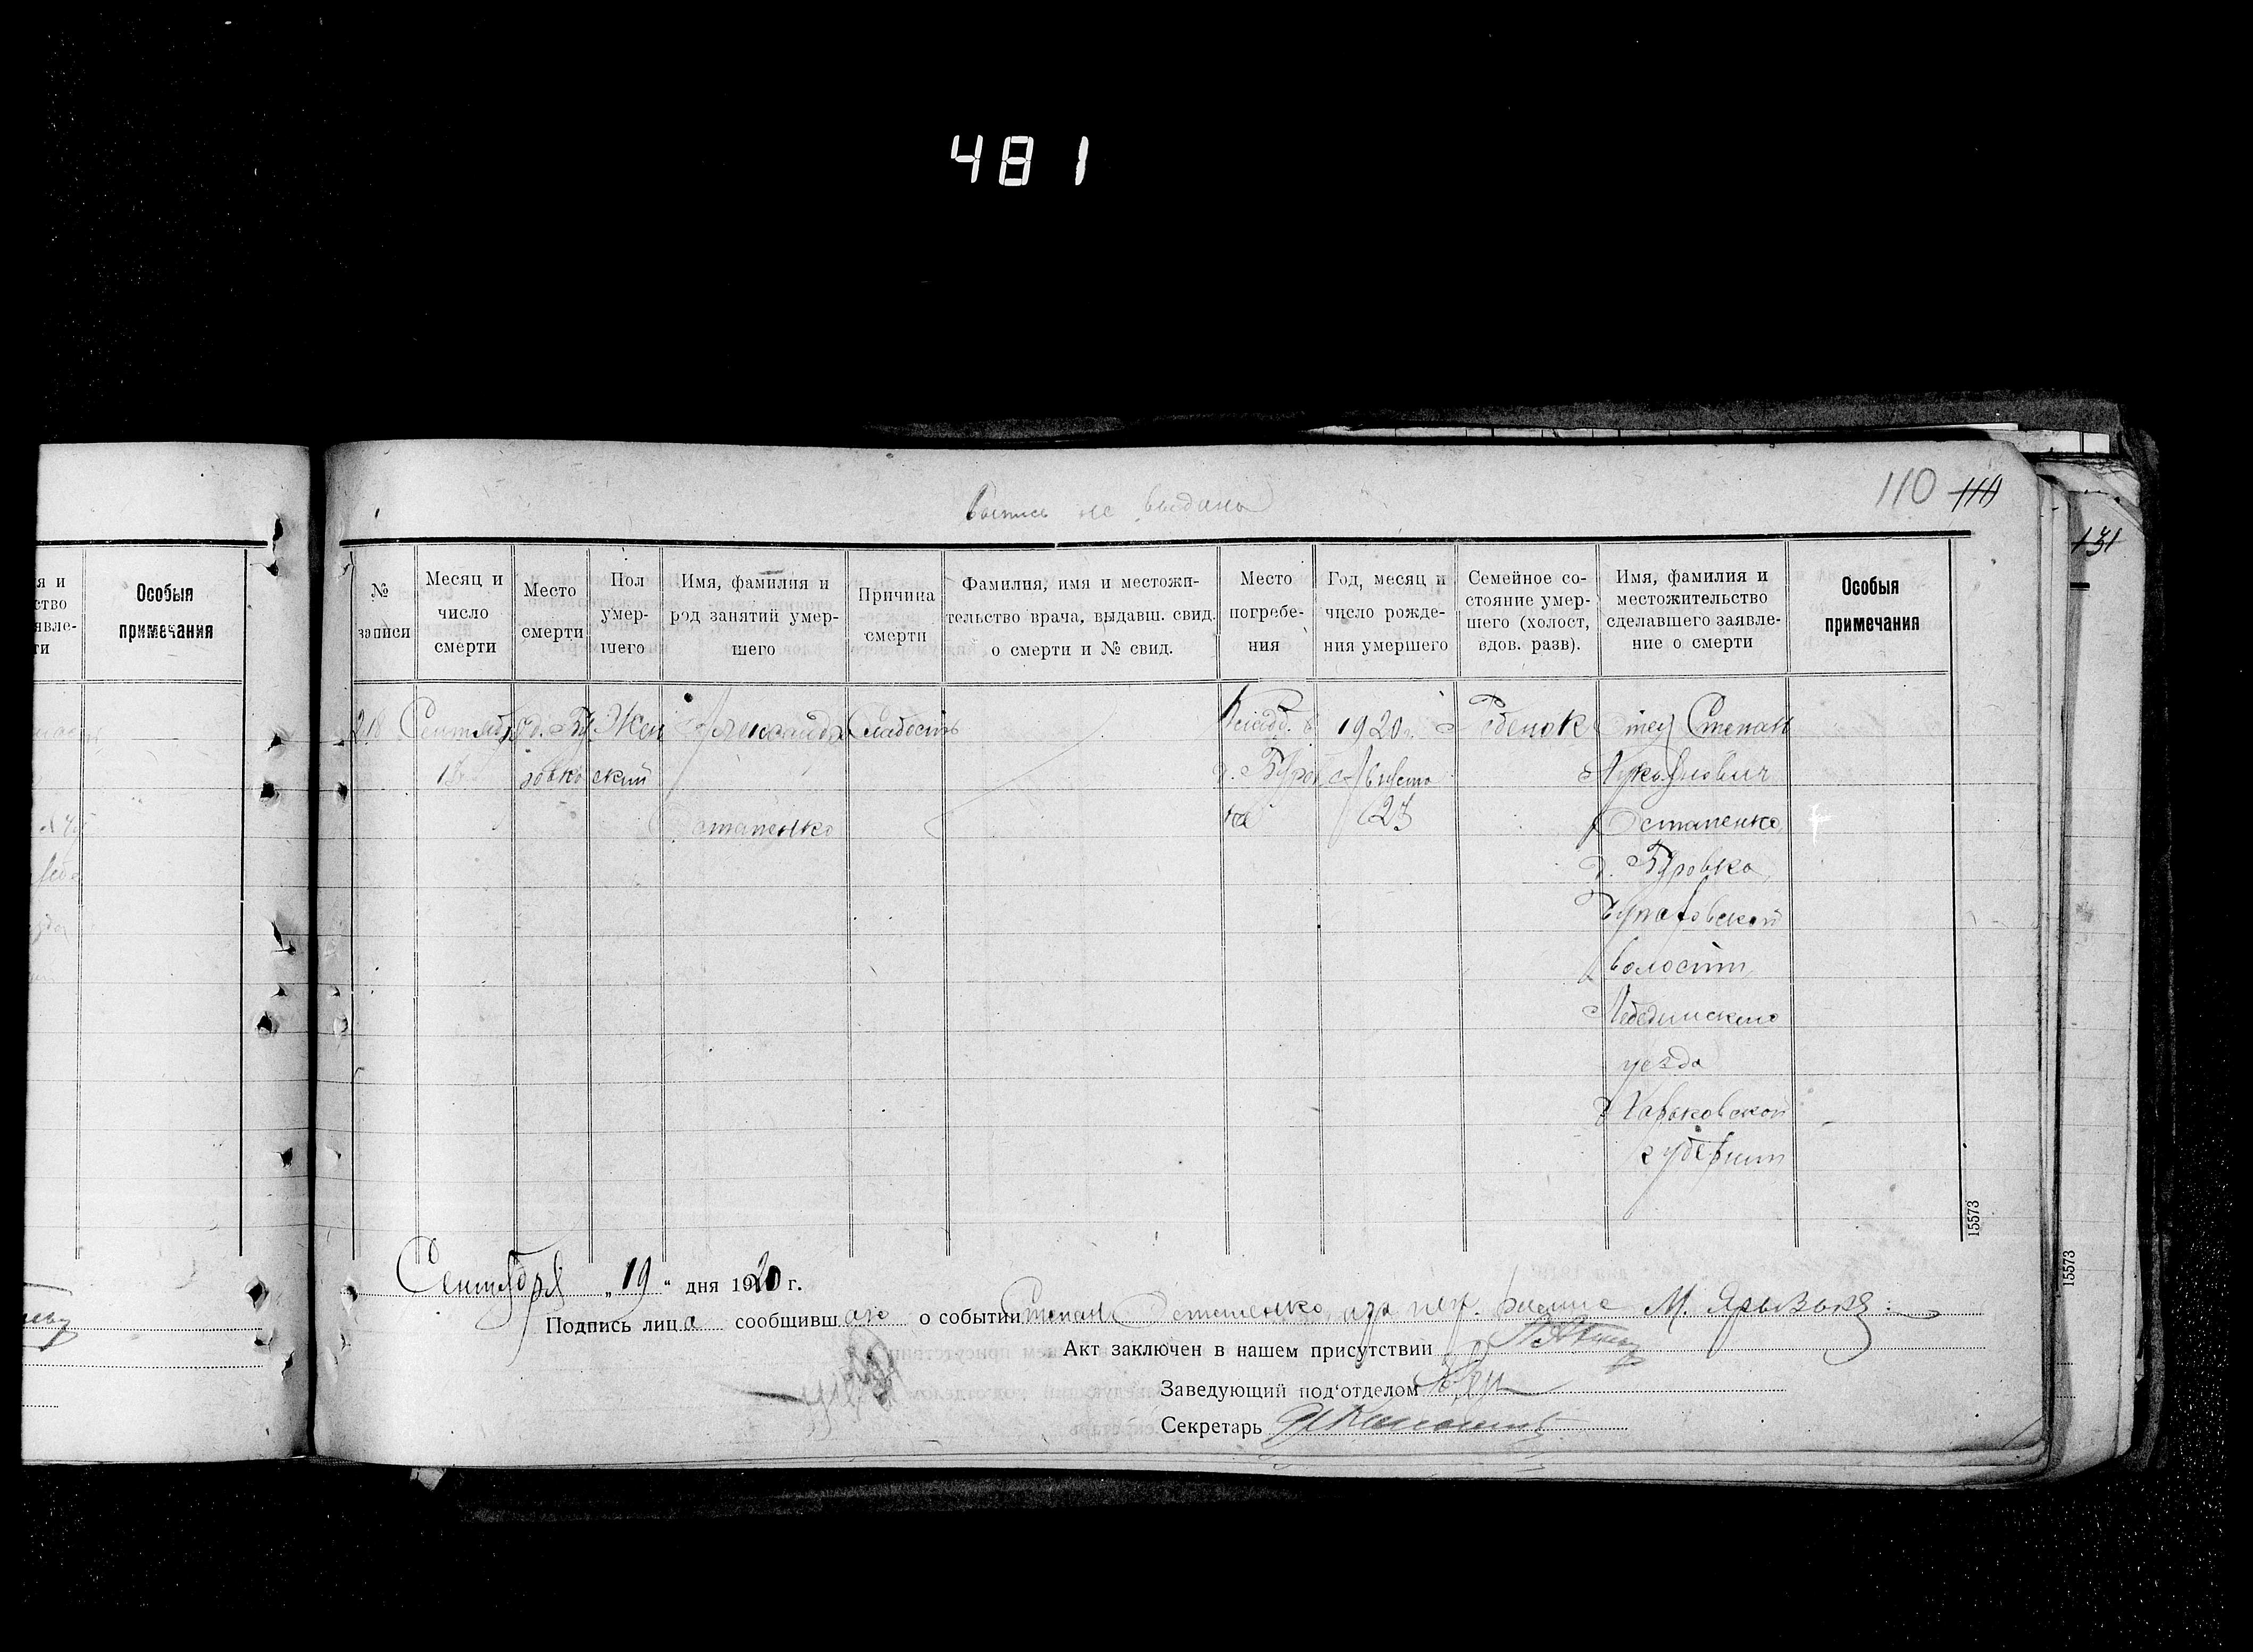 481
110 110
131
Выпись не выдана
я и
ство
явле-
ти
Особыя
примечания
№
записи
Месяц и
число
смерти
Место
смерти
Пол
умер-
шего
Имя, фамилия и
род занятий умер-
шего
Причина
смерти
Фамилия, имя и местожи-
тельство врача, выдавш. свид.
о смерти и № свид.
Место
погребе-
ния
Год, месяц и
число рожде-
ния умершего
Семейное со-
стояние умер-
шего (холост,
вдов. разв).
Имя, фамилия и
местожительство
сделавшего заявле-
ние о смерти
Особыя
примечания
218
Сентябр
д. Бу
ровка
Жен
ский
Александра
Остапенко
Слабость
Кладб. в
д. Буров
ка
1920 г.
Августа
23
Ребенок
Отец Степан
Лукьянович
Остапенко
д. Буровка
волости
Лебединского
уезда
Харьковской
губернии
15573
15573
Сентября „19“ дня 1920 г.
Подпись лица сообщившаго о событии Степан Остапенко, а за неу.
Акт заключен в нашем присутствии
Заведующий под‘отделом
Секретарь